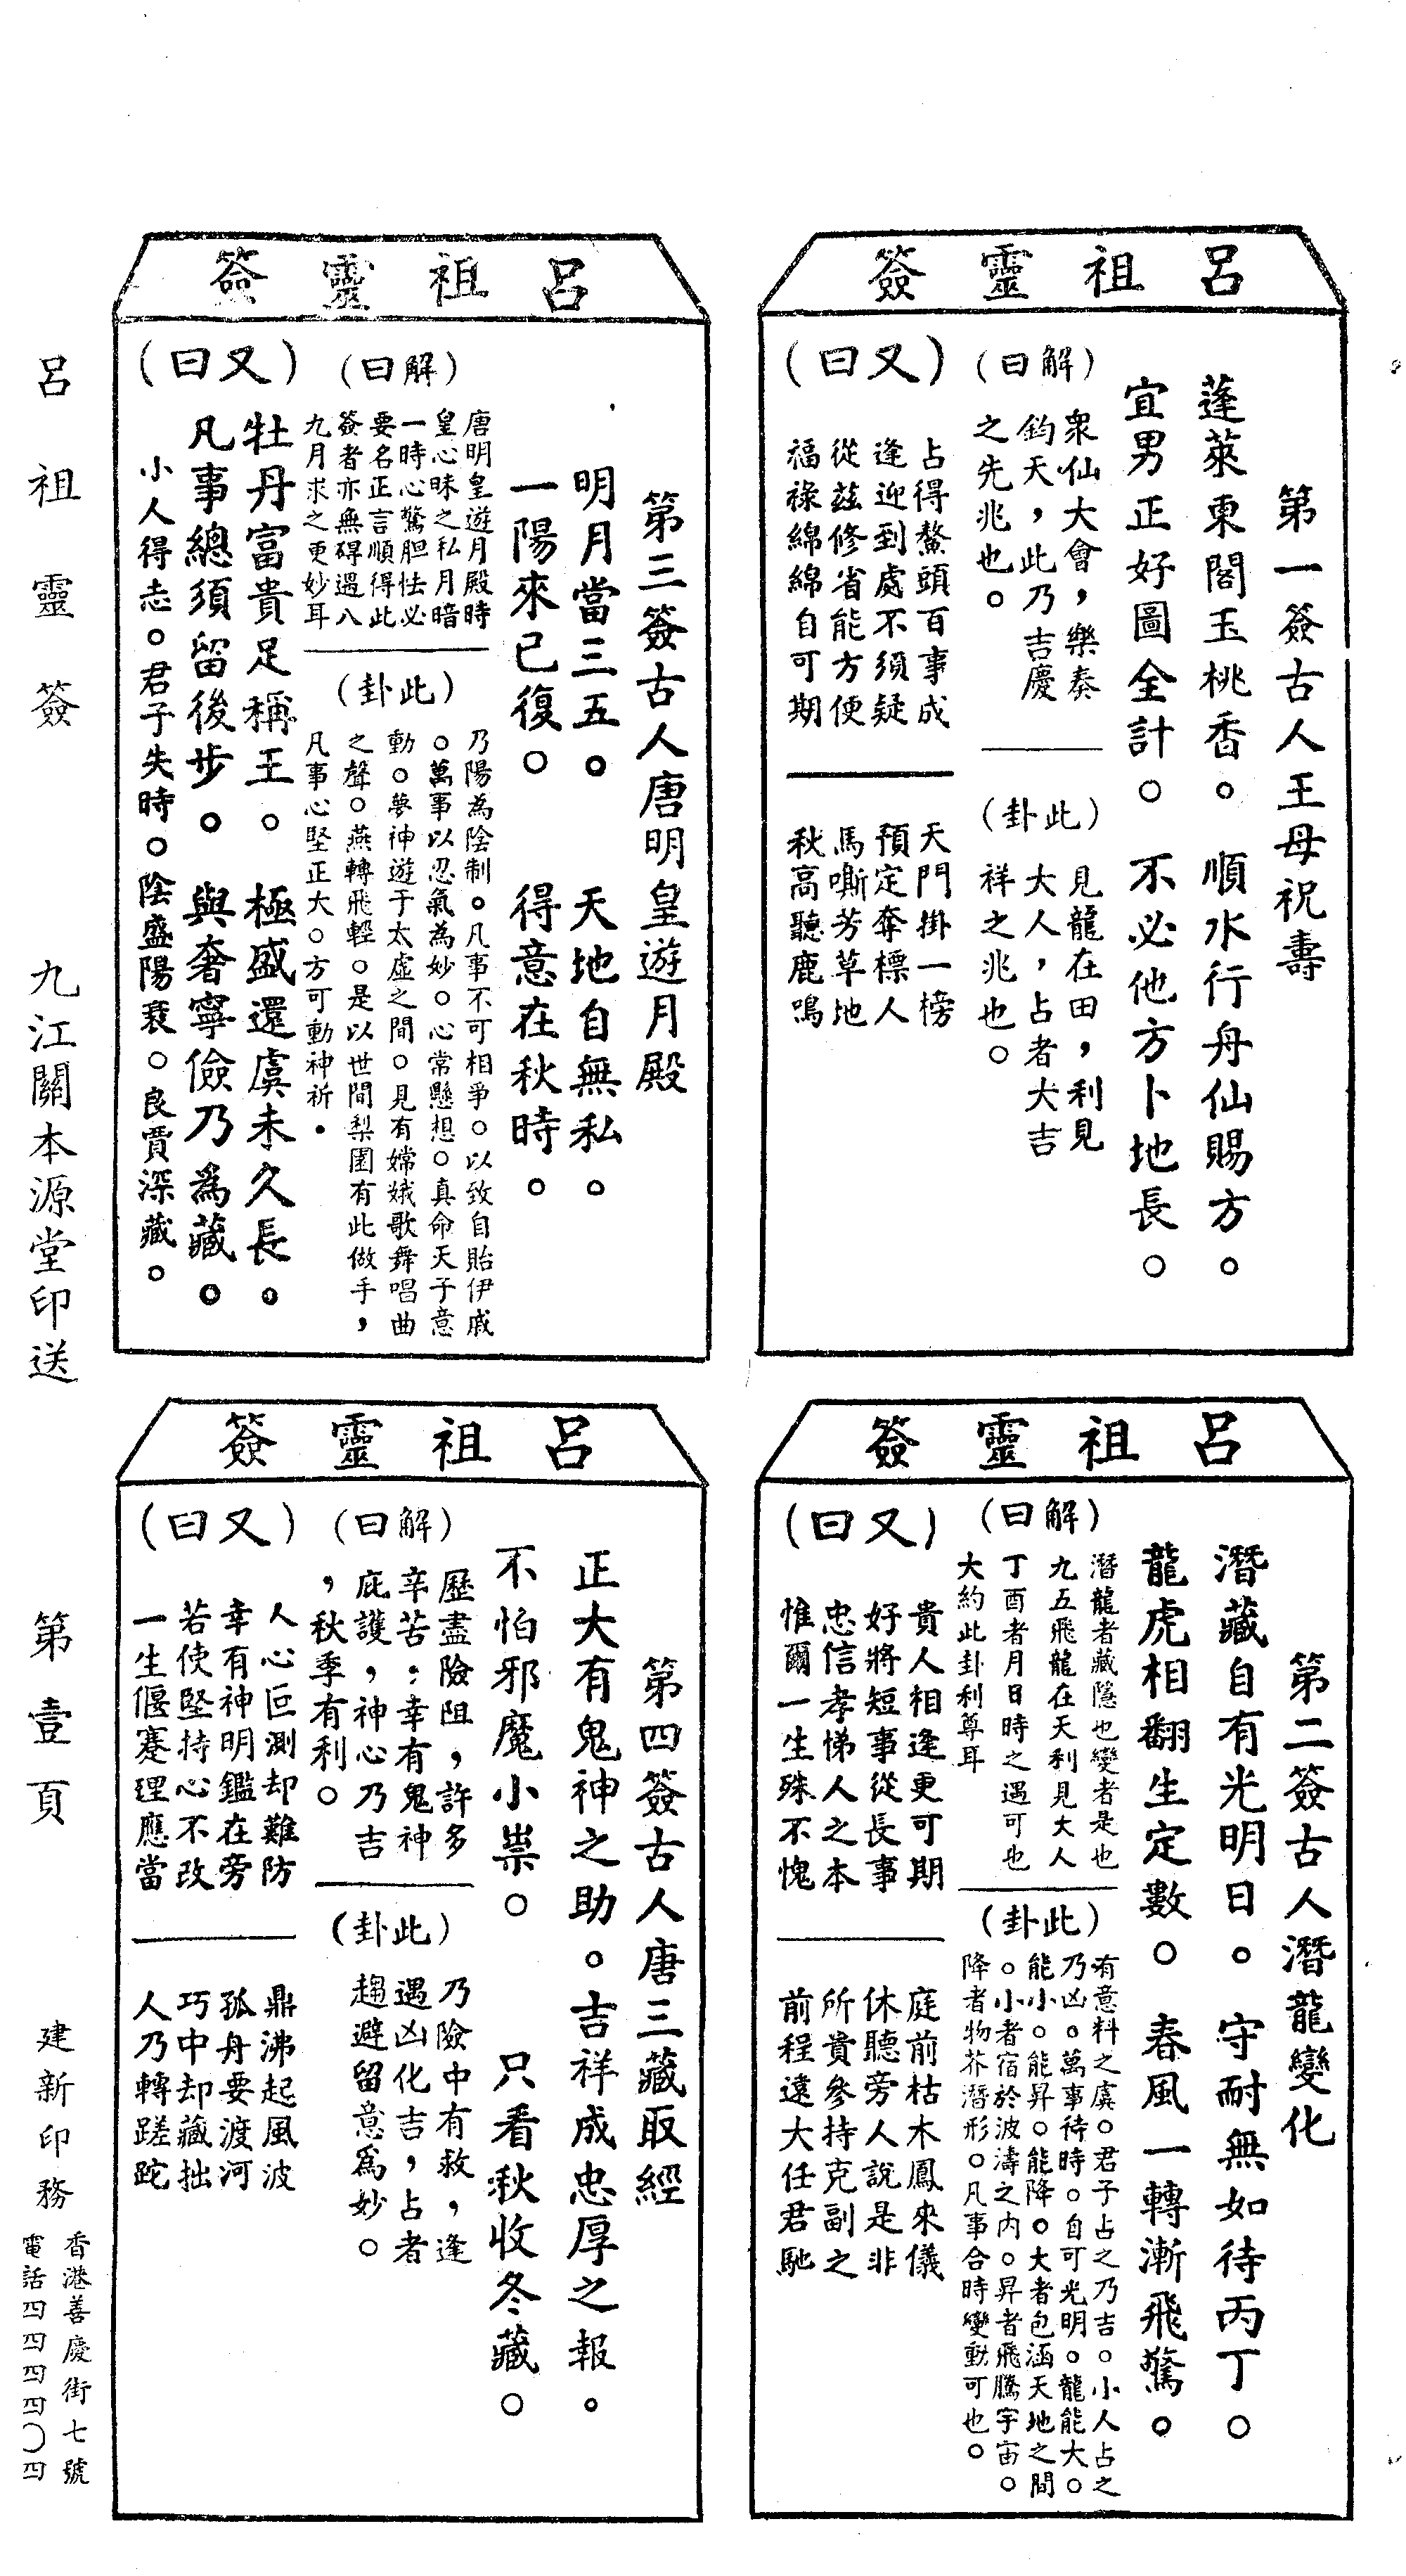 呂祖靈簽
第一簽古人王母祝壽
蓬萊東閣玉桃香。順水行舟仙賜方。
宜男正好圖全計。不必他方卜地長。
(解曰)
衆仙大會,樂奏
鈞天,此乃吉慶
之先兆也。
(此卦)
見龍在田,利見
大人,占者大吉
祥之兆也。
(又曰)
占得鰲頭百事成
逢迎到處不須疑
從茲修省能方便
福祿綿綿自可期
天門掛一榜
預定奪標人
馬嘶芳草地
秋高聽鹿鳴
呂祖靈簽
第二簽古人潛龍變化
潛藏自有光明日。守耐無如待丙丁。
龍虎相翻生定數。春風一轉漸飛驚。
(解曰)
潛龍者藏隱也變者是也
九五飛龍在天利見大人
丁酉者月日時之遇可也
大約此卦利尊耳
(此卦)
有意料之虞。君子占之乃吉。小人占之
乃凶。萬事待時。自可光明。龍能大。
能小。能昇。能降。大者包涵天地之間
。小者宿於波濤之內。昇者飛騰宇宙。
降者物芥潛形。凡事合時變動可也。
(又曰)
貴人相逢更可期
好將短事從長事
忠信孝悌人之本
惟爾一生殊不愧
庭前枯木鳳來儀
休聽旁人說是非
所貴參持克副之
前程遠大任君馳
呂祖靈簽
第三簽古人唐明皇遊月殿
明月當三五。天地自無私。
一陽來已復。得意在秋時。
(解曰)
唐明皇遊月殿時
皇心昧之私月暗
一時心驚胆怯必
要名正言順得此
簽者亦無碍遇八
九月求之更妙耳
(此卦)
乃陽為陰制。凡事不可相爭。以致自貽伊戚
。萬事以忍氣為妙。心常懸想。真命天子意
動。夢神遊于太虛之間。見有嫦娥歌舞唱曲
之聲。燕轉飛輕。是以世間梨園有此做手,
凡事心堅正大。方可動神祈.
(又曰)
牡丹富貴足稱王。極盛還虞未久長。
凡事總須留後步。與奢寧儉乃為藏。
小人得志。君子失時。陰盛陽衰。良賈深藏。
呂祖靈簽
第四簽古人唐三藏取經
正大有鬼神之助。吉祥成忠厚之報。
不怕邪魔小祟。只看秋收冬藏。
(解曰)
歷盡險阻,許多
辛苦;幸有鬼神
庇護,神心乃吉
,秋季有利。
(此卦)
乃險中有救,逢
遇凶化吉,占者
趨避留意為妙。
(又曰)
人心叵測却難防
幸有神明鑑在旁
若使堅持心不改
一生偃蹇理應當
鼎沸起風波
孤舟要渡河
巧中却藏拙
人乃轉蹉跎
呂祖靈簽 九江關本源堂印送 第壹頁 建新印務
香港善慶街七號
電話四四四四〇四